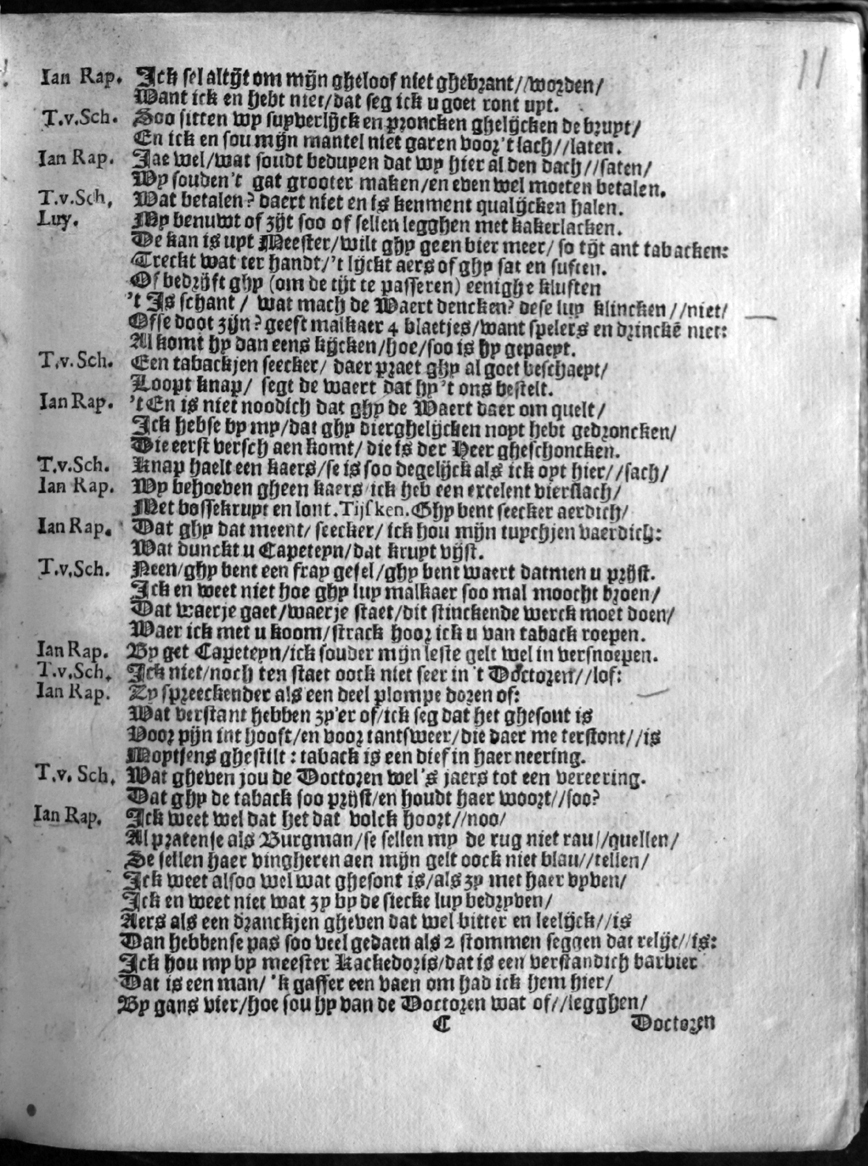 11
Ian Rap. Ick sel altijt om mijn gheloof niet ghebrant//worden/
Want ick en hebt niet/dat seg ick u goet ront upt.
T.v.Sch. Soo sitten wy supverlijck en proncken ghelijcken de brupt/
En ick en sou mijn mantel niet garen voor't lach//laten.
Ian Rap. Jae wel/wat soudt bedupen dat wy hier al den dach//saten/
Wy souden't gat grooter maken/en even wel moeten betalen.
T.v.Sch, Wat betalen? daert niet en is kenment qualijcken halen.
Luy. My benuwt of zijt soo of sellen legghen met kakerlacken.
De kan is upt Meester/wilt ghy geen bier meer/ so tijt ant tabacken:
Treckt wat ter handt/'t lijckt aers of ghy sat en suften.
Of bedrijft ghy (om de tijt te passeren) eenighe kluften
't Is schant / wat mach de Waert dencken? dese luy klincken //niet/
Ofse doot zijn? geeft malkaer 4 blaetjes/want spelers en drinckē niet:
Al komt hy dan eens kijcken/hoe/soo is hy gepaeyt.
T.v.Sch. Een tabackjen seecker/ daer praet ghy al goet beschaept/
Loopt knap/ segt de waert dat hy't ons bestelt.
Ian Rap. 't En is niet noodich dat ghy de Waert daer om quelt/
Ick hebse by my/dat ghy dierghelijcken noyt hebt gedroncken/
Die eerst versch aen komt/ die is der Heer gheschoncken.
T.v.Sch. Knap haelt een kaers/se is soo degelijck als ick oyt hier//sach/
Ian Rap. Wy behoeven gheen kaers/ick heb een excelent vierslach/
Met bossekruyt en lont.Tijsken.Ghy bent seecker aerdich/
Ian Rap. Dat ghy dat meent/ seecker/ ick hou mijn tuychjen vaerdich:
Wat dunckt u Capeteyn/dat kruyt vijst.
T.v.Sch. Neen/ghy bent een fray gesel/ghy bent waert datmen u prijst.
Ick en weet niet hoe ghy luy malkaer soo mal moocht broen/
Dat waerje gaet/waerje staet/dit stinckende werck moet doen/
Waer ick met u koom/strack hoor ick u van taback roepen.
Ian Rap. By get Capeteyn/ick souder mijn leste gelt wel in versnoepen.
T.v.Sch, Ick niet/noch ten staet oock niet seer in't Doctoren//lof:
Ian Rap. Zy spreeckender als een deel plompe doren of:
Wat verstant hebben zy'er of/ick seg dat het ghesont is
Voor pijn int hooft/en voor tantsweer/die daer me terstont//is
Moytjens ghestilt : taback is een dief in haer neering.
T.v. Sch, Wat gheven jou de Doctoren wel's jaers tot een vereering.
Dat ghy de taback soo prijst/en houdt haer woort//soo?
Ian Rap, Ick weet wel dat het dat volck hoort//noo/
Al pratense als Burgman/se sellen my de rug niet rau//quellen/
Se sellen haer vingheren aen mijn gelt oock niet blau//tellen/
Ick weet alsoo wel wat ghesont is/als zy met haer vyven/
Ick en weet niet wat zy by de siecke luy bedryven/
Aers als een dranckjen gheven dat wel bitter en leelijck//is
Dan hebbense pas soo veel gedaen als 2 stommen seggen dat relijt//is:
Ick hou my by meester Kackedoris/dat is een verstandich barbier
Dat is een man/ 'k gaffer een vaen om had ick hem hier/
By gans vier/hoe sou hy van de Doctoren wat of//legghen/
C Doctoren